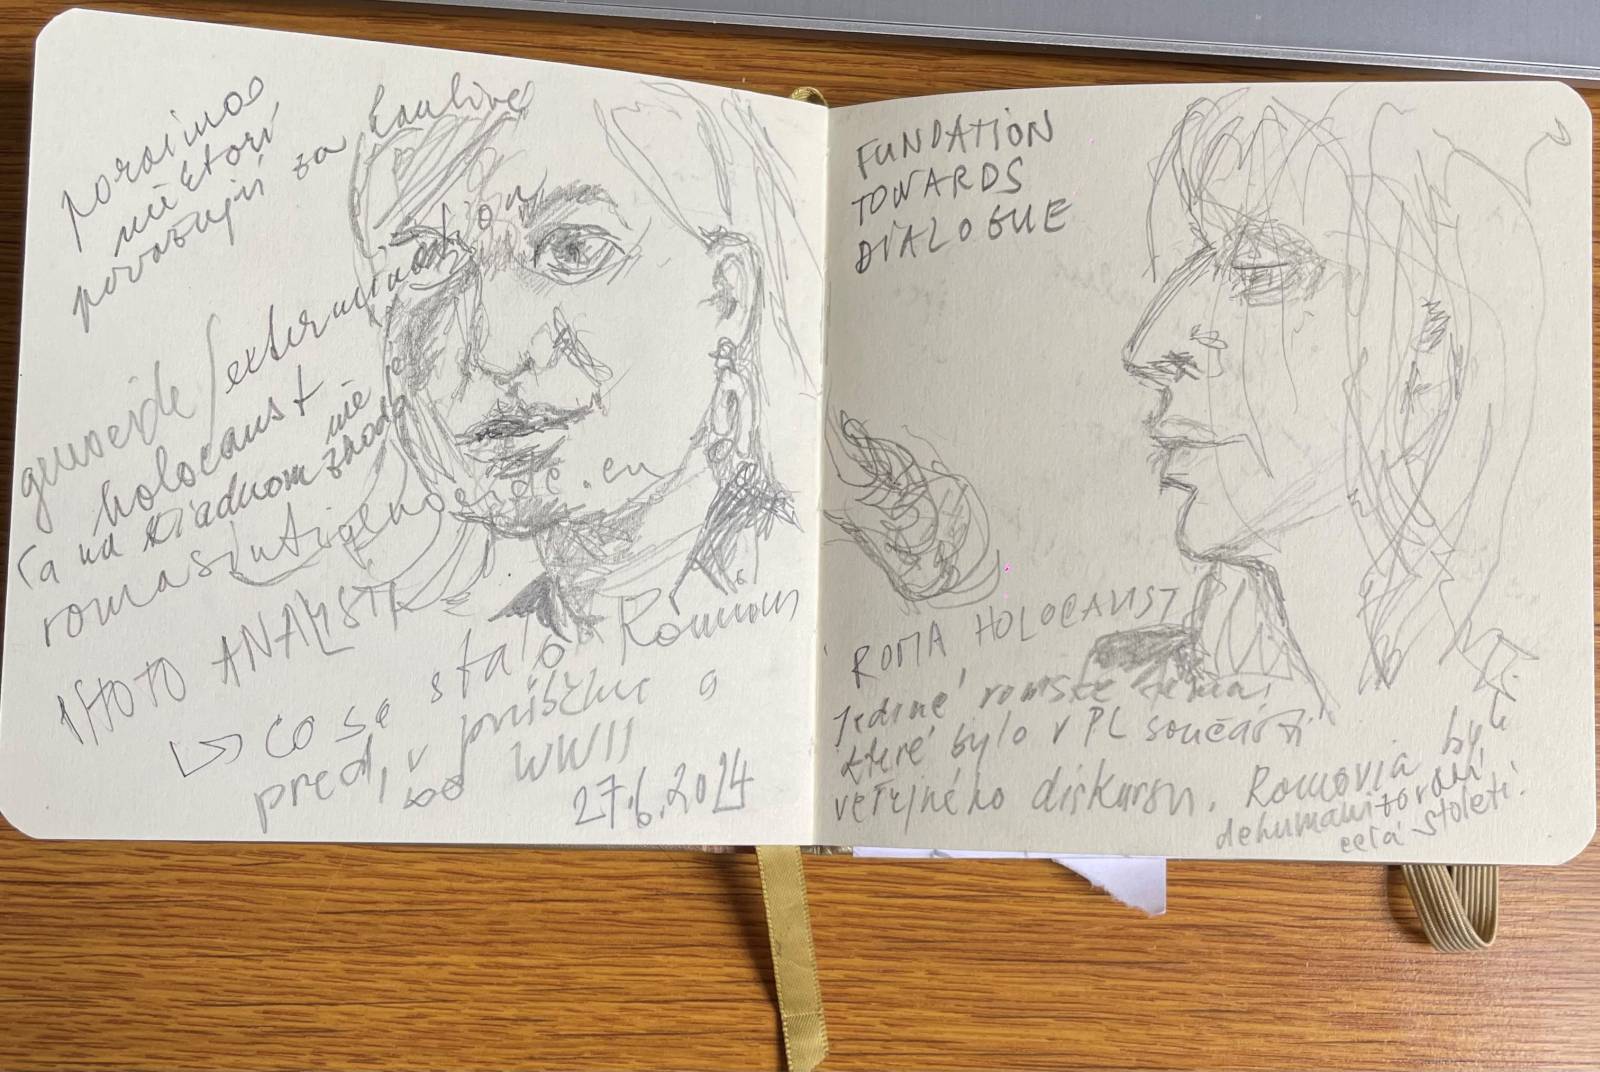 poraimos
niektorí
považujú za hanlivé
genocide/extermination
holocaust
ra na žiadnom nie je
zhoda
romasintigenocide.eu
PHOTO ANALYSTA
↳ CO se stalo Rómom
pred, v priebehu a
po WWII
27.6.2024
FUNDATION
TOWARDS
DIALOGUE
ROMA HOLOCAUST
Jediné romské téma,
které bylo v PL součástí
veřejného diskursu. Romovia byli
dehumanizovaní
celá století.